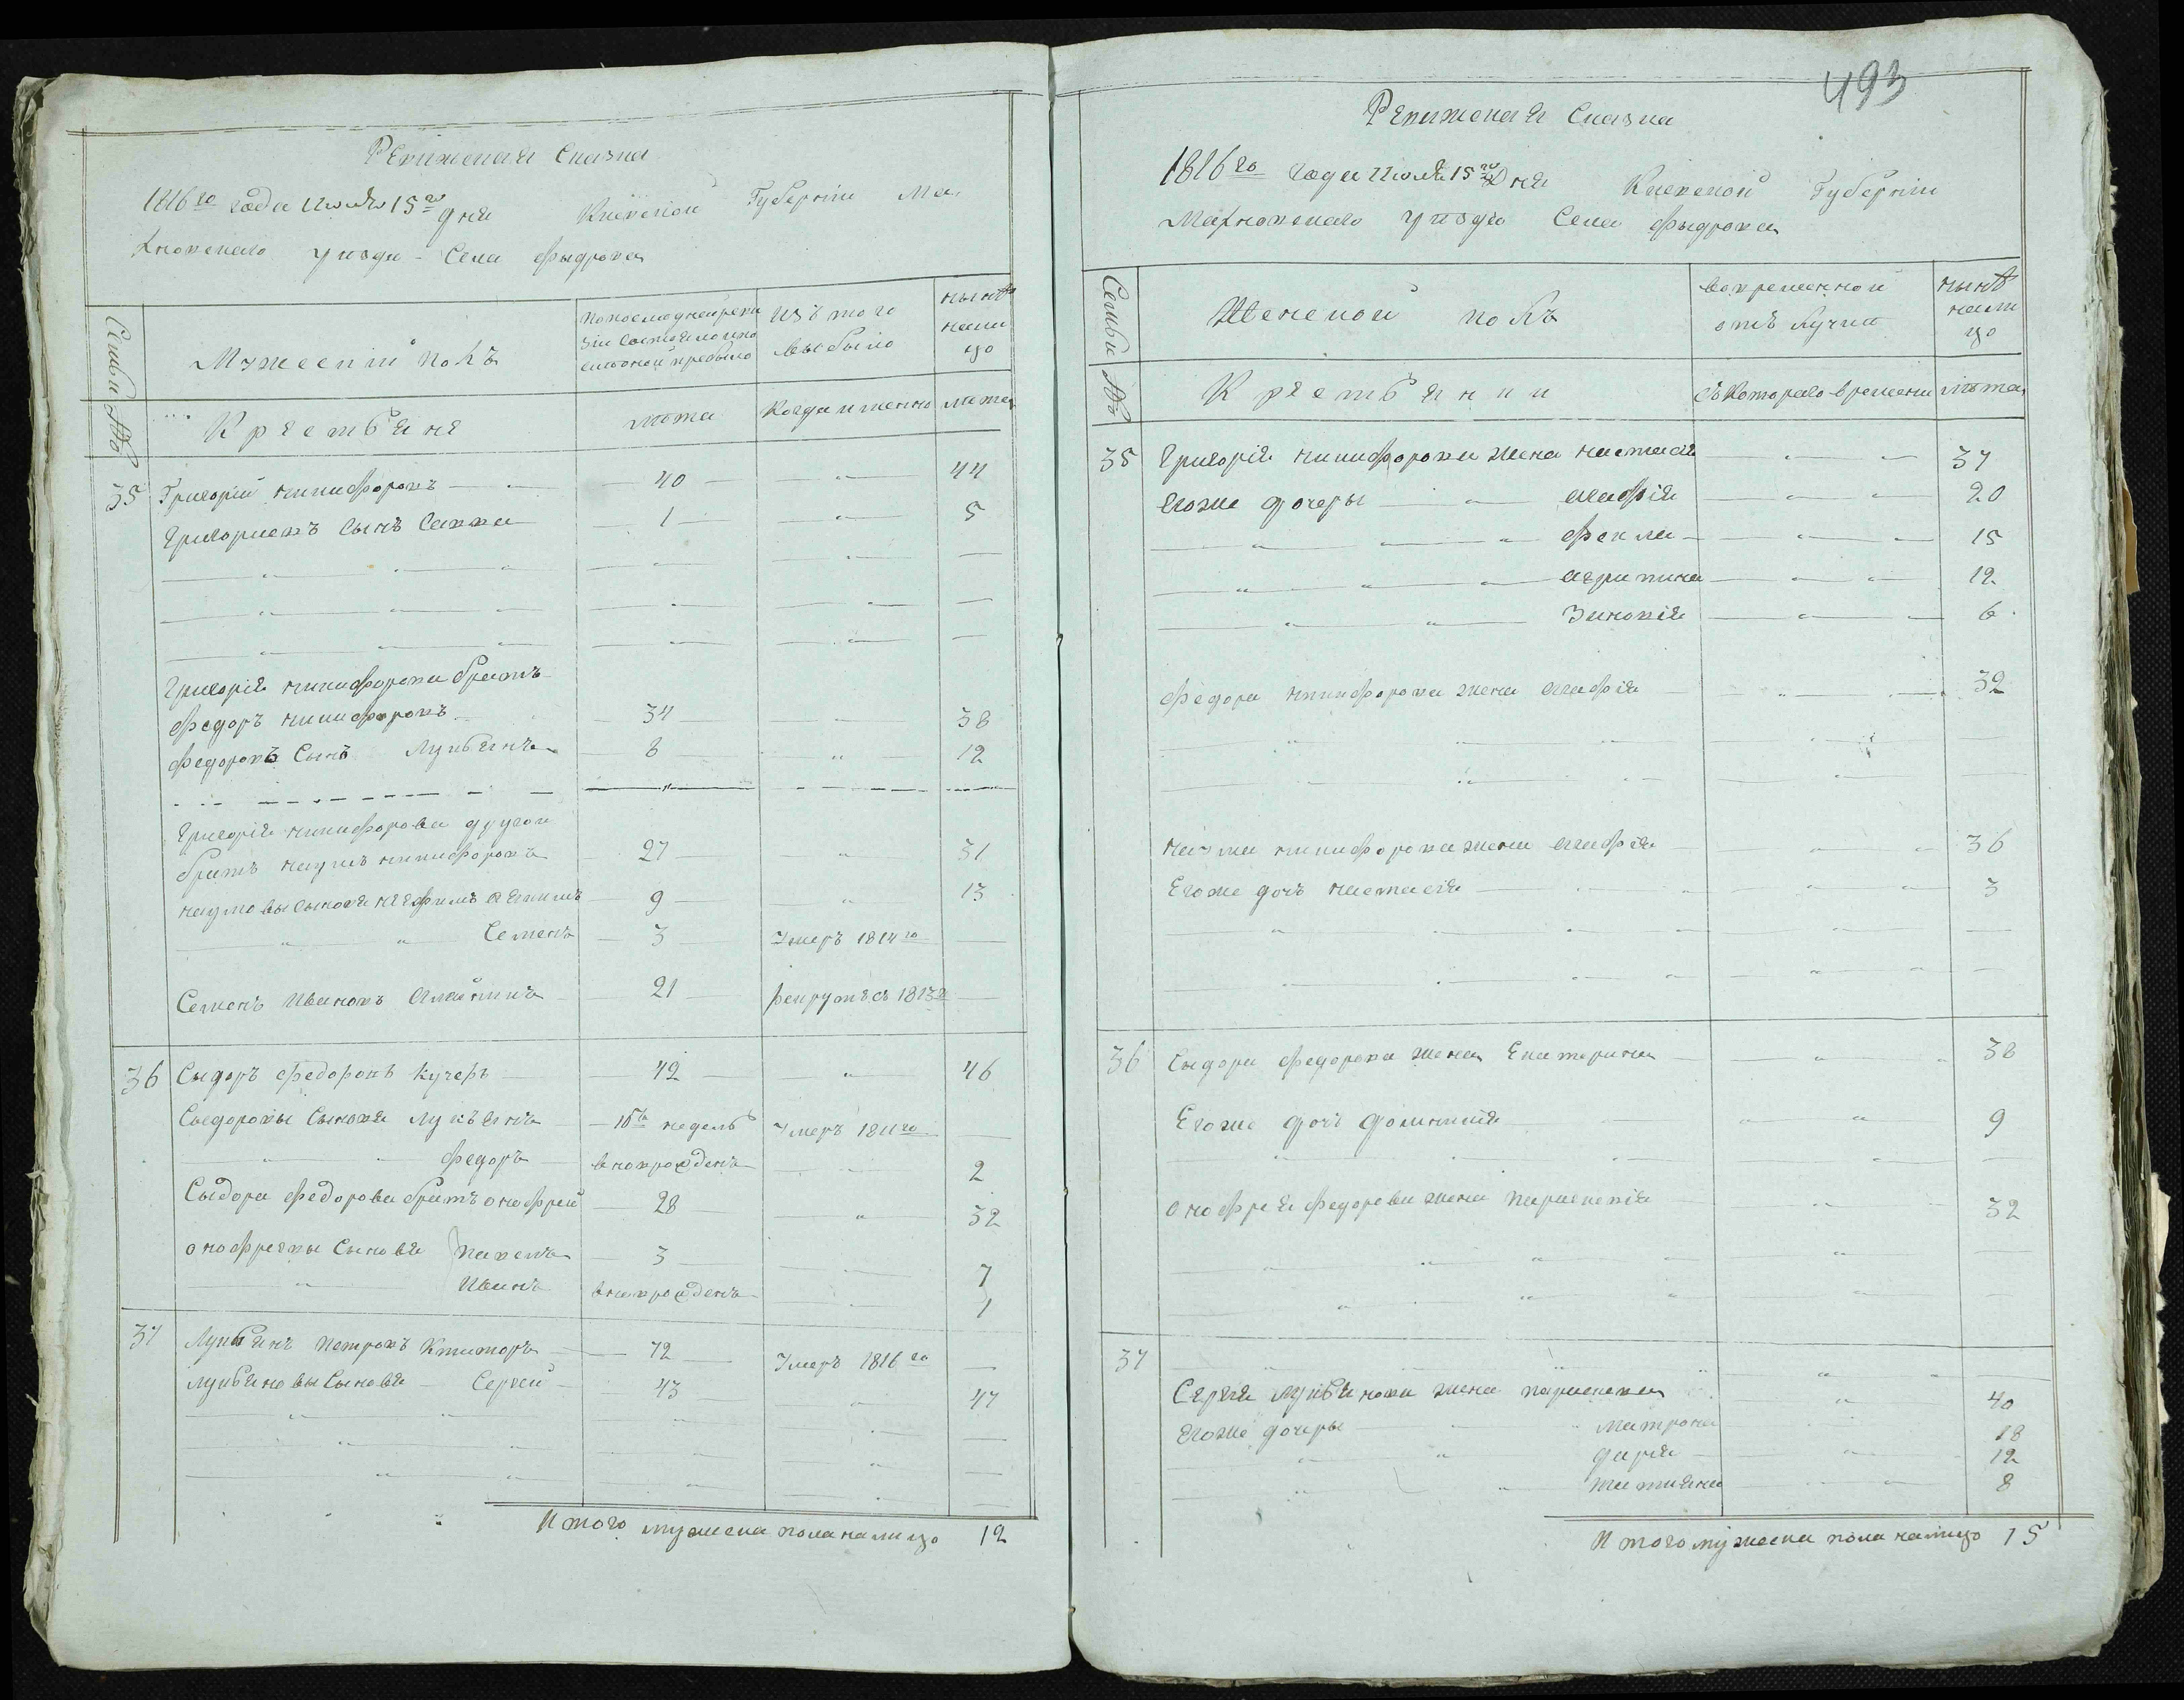 Ревижская Сказка
1816го года Июля 15го дня Киевской Губернии Ма
хновскаго уезда - Села Фыдрова
Семьи
Мужеский полъ
По последней реви
зии состояло и по
сле оной прибыло
Изъ того
выбыло
ныне
нали
цо
№
Крестьяне
лета
Когда именно
лета
35 Григорий никифоровъ 40 44
Григориевъ сынъ Савка 1 5
Григория никифорова братъ
Федоръ никифоровъ 34 38
Федоровъ Сынъ Лукьянъ 8 12
Григория никифорова другой
братъ наумъ никифоровъ 27 31
наумовы сыновя 9 13
Семенъ 3 Умеръ 1814го
Семенъ Ивановъ 21 рекрутъ съ 1813г
36 Сыдоръ Федоровъ Кучеръ 42 46
Сыдоровы Сыновя Лукъянъ недель Умеръ 1811го
Федоръ вновророденъ 2
Сыдора Федорова братъ онофрей 28 32
онофреевы Сыновя Павелъ 3 7
Иванъ 1
37 Лукьянъ Петровъ Ктиторъ 72 Умеръ 1816го
Лукьяновы Сыновя Сергей 43 47
Итого мужеска пола налицо 12
493
Ревижская Сказка
1816го года Июля 15го Дня Киевской Губернии
Махновскаго уезда Села Фыдрова
Семьи
Женской полъ
во временной
отъ лучки
ныне
нали
цо
№
Крестьянки
съ Котораго времени
лета
35 Григория никифорова жена настася 37
Егоже дочеры агафия 20
Фекла 15
агрипина 12
Зиновия 6
Федора никифорова жена агафия 32
наума никифорова жена агафия 36
Егоже дочъ настасия 3
36 Сыдора Федорова жена Екатерина 38
Егоже дочъ доминикия 9
онофрея Федорова жена параскевия 32
37
Сергея лукьянова жена параскева 40
Егоже дочеры матрона 18
дария 12
татияна 8
Итого мужеска пола налицо 15